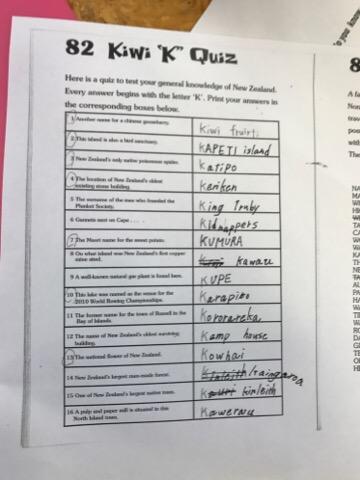 82 Kiwi "K" Quiz
Here is a quiz to test your general knowledge of New Zealand.
Every answer begins with the letter 'K'. Print your answers in
the corresponding boxes below.
1 Another name for a chinese gooseberry.
Kiwi fruit
2 This island is also a bird sanctuary.
KAPETI island
3 New Zealand's only native poisonous spider.
katipo
4 The location of New Zealand's oldest
existing stone building.
keriken
5 The surname of the man who founded the
Plunket Society.
King Truby
6 Gannets nest on Cape . . . .
Kidnappers
7 The Maori name for the sweet potato.
KUMURA
8 On what island was New Zealand's first copper
mine sited.
kawau
9 A well-known natural gas plant is found here.
KUPE
10 This lake was named as the venue for the
2010 World Rowing Championships.
Karapiro
11 The former name for the town of Russell in the
Bay of Islands.
Kororareka
12 The name of New Zealand's oldest surviving
building.
Kemp house
13 The national flower of New Zealand.
Kowhai
14 New Zealand's largest man-made forest.
Kinleith
15 One of New Zealand's largest native trees.
kauri kinleith
16 A pulp and paper mill is situated in this
North Island town.
Kawerau